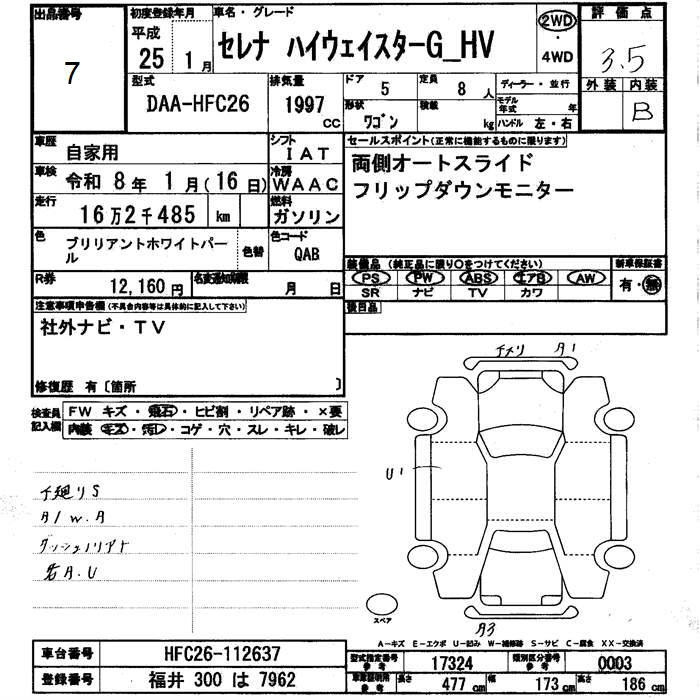 出品番号
7
初度登録年月
平成
25 1月
車名・グレード
セレナ ハイウェイスターG_HV
2WD
・
4WD
評価点
3.5
外装 内装
B
型式
DAA-HFC26
排気量
1997 CC
ドア 5
定員 8人
形状 ワゴン
積載 kg
ディーラー・並行
モデル年式 年
ハンドル 左・右
車歴 自家用
シフト IAT
車検 令和 8年 1月(16日)
冷房 WAAC
走行 16万2千485 km
燃料 ガソリン
色 ブリリアントホワイトパール
色替
色コード QAB
R券 12,160円
名変通知期限 月 日
セールスポイント(正常に機能するものに限ります)
両側オートスライド
フリップダウンモニター
装備品(純正品に限り○をつけてください)
PS PW ABS エアB AW
SR ナビ TV カワ
新車保証書
有・無
後日品
注意事項申告欄(不具合内容等は具体的に記入して下さい)
社外ナビ・TV
修復歴 有〔箇所 〕
検査員記入欄
FW キズ・飛石・ヒビ割・リペア跡・×要
内装 キズ・汚レ・コゲ・穴・スレ・キレ・破レ
下廻りS
A/W.A
各A.U
A1
U1
A3
スペア
A-キズ E-エクボ U-凹み W-補修跡 S-サビ C-腐食 XX-交換済
車台番号 HFC26-112637
登録番号 福井 300 は 7962
型式指定番号 参考 17324
類別区分番号 参考 0003
車庫証明用 参考
長さ 477cm
幅 173cm
高さ 186cm